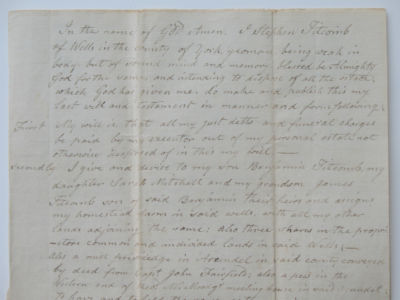 In the name of God Amen. I Stephen Titcomb
of Wells in the county of York, yeoman, being weak in
body but of sound mind and memory, blessed be Almighty
God for the same, and intending to dispose of all the estate
which God has given me, do make and publish this my
last will and testament in manner and form following.
First My will is, that all my just debts and funeral charges
be paid by my executor out of my personal estate not
otherwise disposed of in this my will —
Secondly I give and devise to my son Benjamin Titcomb, my
daughter Sarah Mitchell and my grandson James
Titcomb son of said Benjamin their heirs and assigns
my homestead farm in said Wells, with all my other
lands adjoining the same: Also three shares in the propri
-etors common and undivided lands in said Wells; —
Also a mill priviledge in Arundel in said county conveyed
by deed from Capt. John Fairfield; also a pew in the
meeting house in said Arundel
To have and to hold the